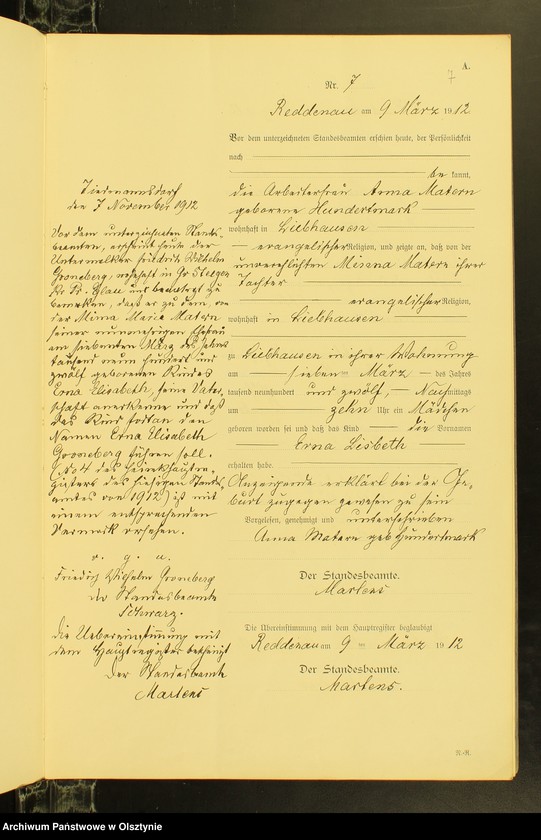 A.
7
Nr. 7
Reddenau am 9 März 1912
Vor dem unterzeichneten Standesbeamten erschien heute, der Persönlichkeit
nach
be kannt,
die Arbeiterfrau Anna Matern
geborene Hundertmark
wohnhaft in Liebhausen
evangelischer Religion, und zeigte an, daß von der
unverehlichten Minna Matern ihrer
Tochter
evangelischer Religion,
wohnhaft in Liebhausen
zu Liebhausen in ihrer Wohnung
am sieben ten März des Jahres
tausend neunhundert und zwölf, Nachmittags
um zehn Uhr ein Mädchen
geboren worden sei und daß das Kind die Vornamen
Erna Lisbeth
erhalten habe.
Anzeigende erklärt bei der Ge-
burt zugegen gewesen zu sein
Vorgelesen, genehmigt und unterschrieben
Anna Matern geb Hundertmark
Der Standesbeamte.
Martens
Die Übereinstimmung mit dem Hauptregister beglaubigt
Reddenau am 9 ten März 1912
Der Standesbeamte.
Martens.
R.-R.
Tiedmannsdorf
den 7 November 1912
Vor dem unterzeichneten Stands-
beamten, erscheint heute der
Unterwalker Friedrich Wilhelm
Groneberg, wohnhaft in Gr Steegen
Kr Pr. Eylau und beantragt zu
bemerken, daß er zu dem, von
der Minna Maria Matern
seiner nunmehrigen Ehefrau
am siebenten März des Jahres
tausend neun hundert und
zwölf geborenen Kindes
Erna Elisabeth, seine Vater-
schaft anerkenne und daß
das Kind fortan den
Namen Erna Elisabeth
Groneberg führen soll.
No 4 des
gisters des hiesigen Stands-
amtes von 1912) ist mit
einem entsprechenden
Vermerk versehen.
v. g. u.
Friedrich Wilhelm Groneberg
der Standesbeamte
Schwarz.
Die Uebereinstimmung mit
dem Hauptregister bestätigt
Der Standesbeamte
Martens
Archiwum Państwowe w Olsztynie